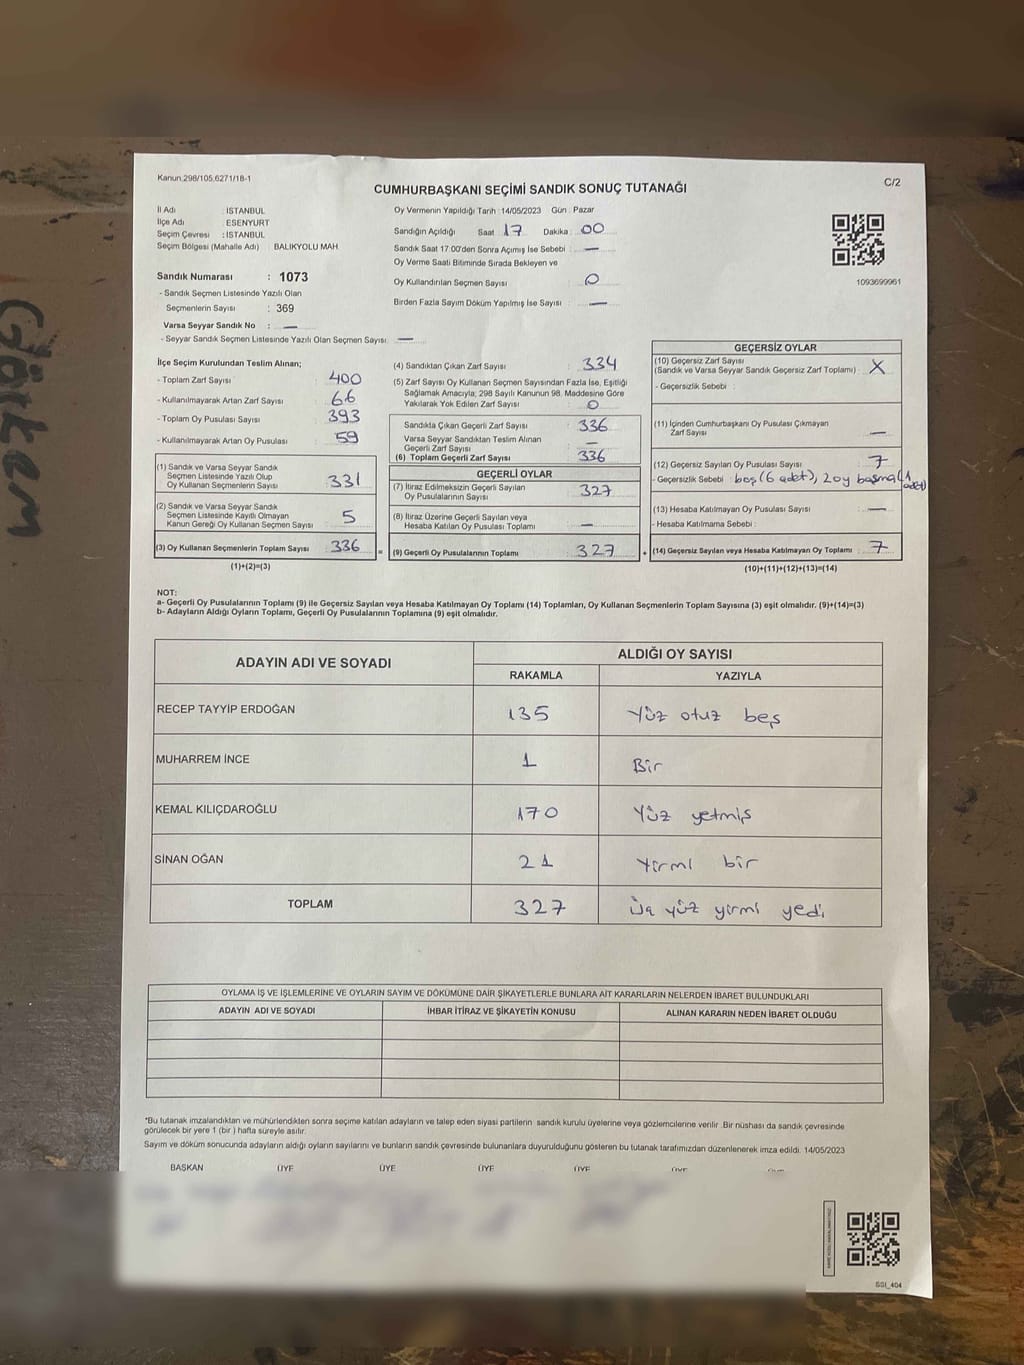 Görkem
Kanun.298/105,6271/18-1
C/2
CUMHURBAŞKANI SEÇİMİ SANDIK SONUÇ TUTANAĞI
İl Adı : İSTANBUL
İlçe Adı : ESENYURT
Seçim Çevresi : İSTANBUL
Seçim Bölgesi (Mahalle Adı) : BALIKYOLU MAH
Sandık Numarası : 1073
- Sandık Seçmen Listesinde Yazılı Olan
Seçmenlerin Sayısı : 369
Varsa Seyyar Sandık No : —
- Seyyar Sandık Seçmen Listesinde Yazılı Olan Seçmen Sayısı: —
Oy Vermenin Yapıldığı Tarih : 14/05/2023 Gün : Pazar
Sandığın Açıldığı Saat : 17 Dakika : 00
Sandık Saat 17.00'den Sonra Açımış İse Sebebi : —
Oy Verme Saati Bitiminde Sırada Bekleyen ve
Oy Kullandırılan Seçmen Sayısı : 0
Birden Fazla Sayım Döküm Yapılmış İse Sayısı : —
1093699961
İlçe Seçim Kurulundan Teslim Alınan;
- Toplam Zarf Sayısı : 400
- Kullanılmayarak Artan Zarf Sayısı : 66
- Toplam Oy Pusulası Sayısı : 393
- Kullanılmayarak Artan Oy Pusulası : 59
(1) Sandık ve Varsa Seyyar Sandık
Seçmen Listesinde Yazılı Olup
Oy Kullanan Seçmenlerin Sayısı : 331
(2) Sandık ve Varsa Seyyar Sandık
Seçmen Listesinde Kayıtlı Olmayan
Kanun Gereği Oy Kullanan Seçmen Sayısı : 5
(3) Oy Kullanan Seçmenlerin Toplam Sayısı : 336
(1)+(2)=(3)
(4) Sandıktan Çıkan Zarf Sayısı : 334
(5) Zarf Sayısı Oy Kullanan Seçmen Sayısından Fazla İse, Eşitliği
Sağlamak Amacıyla; 298 Sayılı Kanunun 98. Maddesine Göre
Yakılarak Yok Edilen Zarf Sayısı : 0
Sandıkla Çıkan Geçerli Zarf Sayısı : 336
Varsa Seyyar Sandıktan Teslim Alınan
Geçerli Zarf Sayısı : —
(6) Toplam Geçerli Zarf Sayısı : 336
GEÇERLİ OYLAR
(7) İtiraz Edilmeksizin Geçerli Sayılan
Oy Pusulalarının Sayısı : 327
(8) İtiraz Üzerine Geçerli Sayılan veya
Hesaba Katılan Oy Pusulası Toplamı : —
= (9) Geçerli Oy Pusulalarının Toplamı : 327
GEÇERSİZ OYLAR
(10) Geçersiz Zarf Sayısı
(Sandık ve Varsa Seyyar Sandık Geçersiz Zarf Toplamı) : X
- Geçersizlik Sebebi :
(11) İçinden Cumhurbaşkanı Oy Pusulası Çıkmayan
Zarf Sayısı : —
(12) Geçersiz Sayılan Oy Pusulası Sayısı : 7
- Geçersizlik Sebebi : boş (6 adet), 2 oy basma (1 adet)
(13) Hesaba Katılmayan Oy Pusulası Sayısı : —
- Hesaba Katılmama Sebebi :
+ (14) Geçersiz Sayılan veya Hesaba Katılmayan Oy Toplamı : 7
(10)+(11)+(12)+(13)=(14)
NOT:
a- Geçerli Oy Pusulalarının Toplamı (9) ile Geçersiz Sayılan veya Hesaba Katılmayan Oy Toplamı (14) Toplamları, Oy Kullanan Seçmenlerin Toplam Sayısına (3) eşit olmalıdır. (9)+(14)=(3)
b- Adayların Aldığı Oyların Toplamı, Geçerli Oy Pusulalarının Toplamına (9) eşit olmalıdır.
ADAYIN ADI VE SOYADI ALDIĞI OY SAYISI
RAKAMLA YAZIYLA
RECEP TAYYİP ERDOĞAN 135 Yüz otuz beş
MUHARREM İNCE 1 Bir
KEMAL KILIÇDAROĞLU 170 Yüz yetmiş
SİNAN OĞAN 21 Yirmi bir
TOPLAM 327 Üç yüz yirmi yedi
OYLAMA İŞ VE İŞLEMLERİNE VE OYLARIN SAYIM VE DÖKÜMÜNE DAİR ŞİKAYETLERLE BUNLARA AİT KARARLARIN NELERDEN İBARET BULUNDUKLARI
ADAYIN ADI VE SOYADI İHBAR İTİRAZ VE ŞİKAYETİN KONUSU ALINAN KARARIN NEDEN İBARET OLDUĞU
*Bu tutanak imzalandıktan ve mühürlendikten sonra seçime katılan adayların ve talep eden siyasi partilerin sandık kurulu üyelerine veya gözlemcilerine verilir .Bir nüshası da sandık çevresinde
görülecek bir yere 1 (bir ) hafta süreyle asılır.
Sayım ve döküm sonucunda adayların aldığı oyların sayılarını ve bunların sandık çevresinde bulunanlara duyurulduğunu gösteren bu tutanak tarafımızdan düzenlenerek imza edildi. 14/05/2023
BAŞKAN ÜYE ÜYE ÜYE ÜYE ÜYE
SSI_404